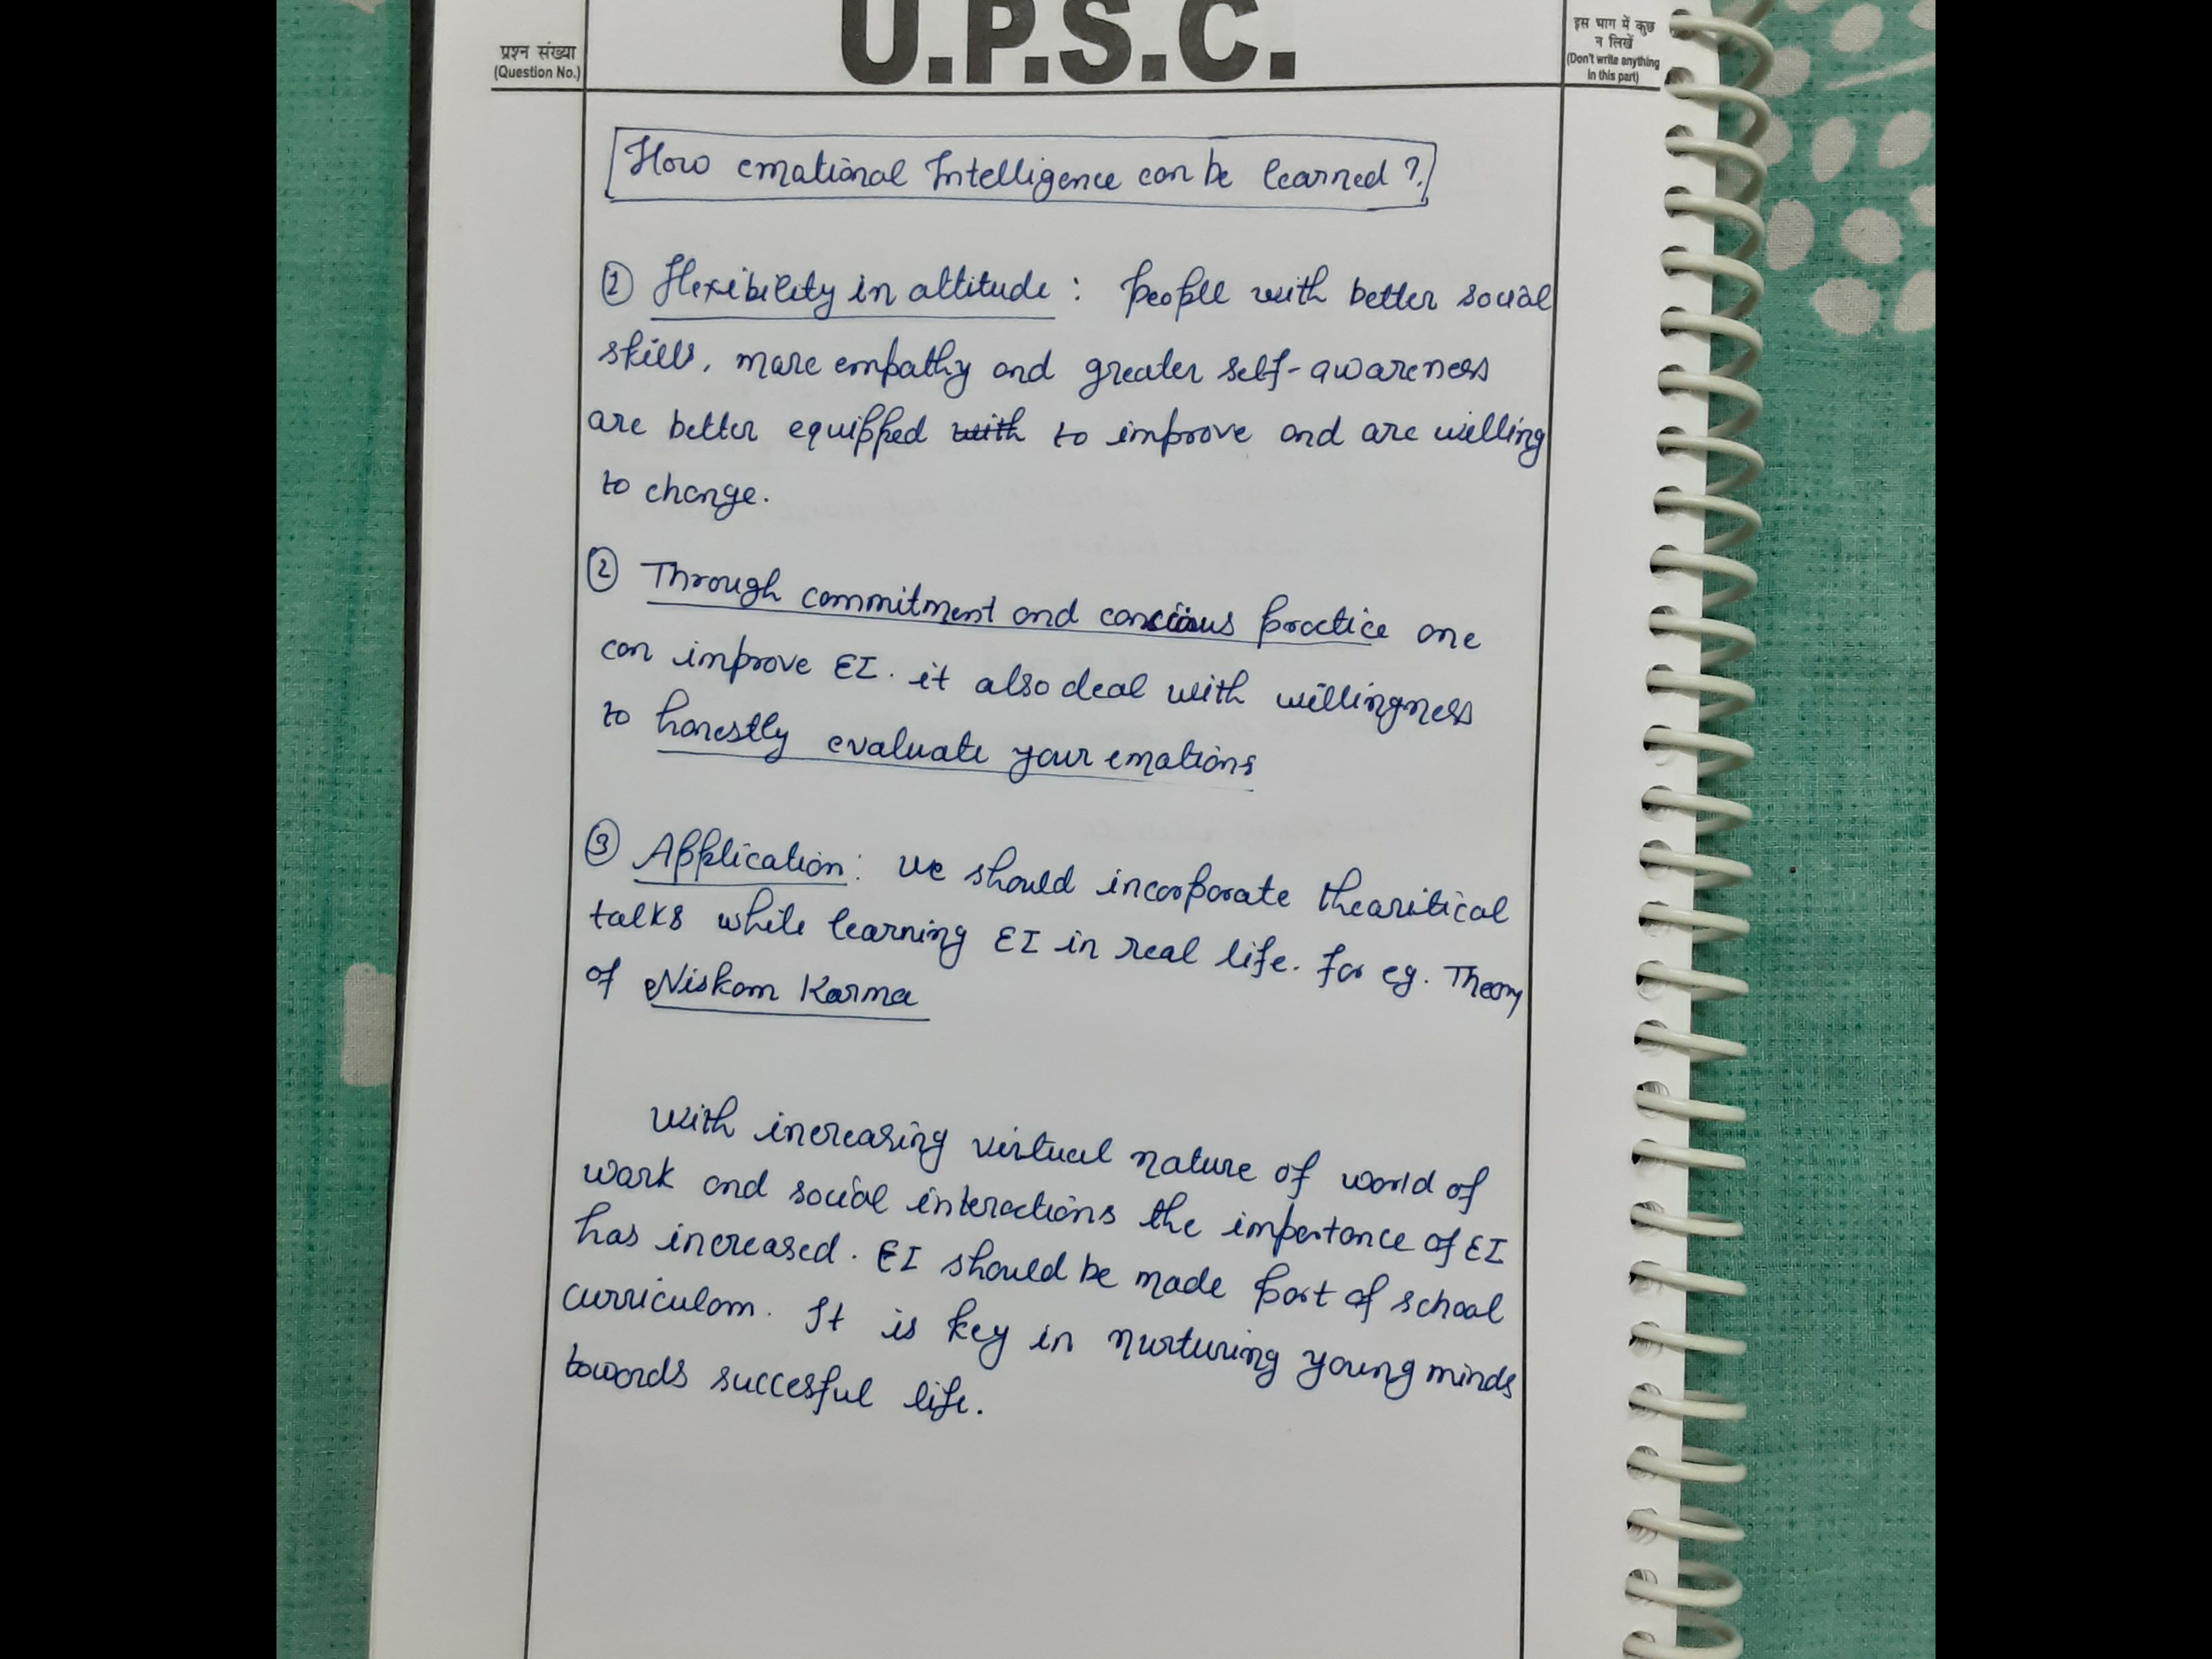 U.P.S.C.
प्रश्न संख्या
(Question No.)
इस भाग में कुछ
न लिखें
(Don't write anything
in this part)
How emotional Intelligence can be learned ?
① Flexibility in attitude : people with better social
skills, more empathy and greater self-awareness
are better equipped with to improve and are willing
to change.
② Through commitment and conscious practice one
can improve EI. it also deal with willingness
to honestly evaluate your emotions
③ Application: we should incorporate theoritical
talks while learning EI in real life. for eg. Theory
of Niskam Karma
With increasing virtual nature of world of
work and social interactions the importance of EI
has increased. EI should be made part of school
curriculam. It is key in nurturing young minds
towards succesful life.